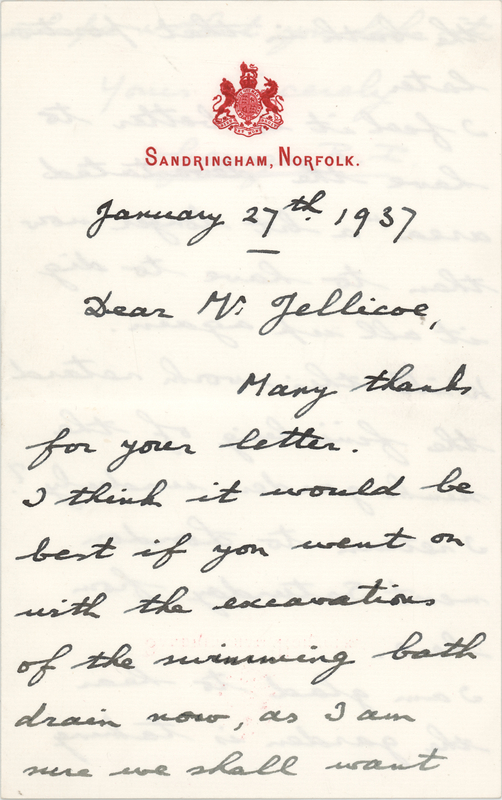 SANDRINGHAM, NORFOLK.
January 27th. 1937
Dear Mr. Jellicoe,
Many thanks
for your letter.
I think it would be
best if you went on
with the excavations
of the swimming bath
drain now, as I am
sure we shall want